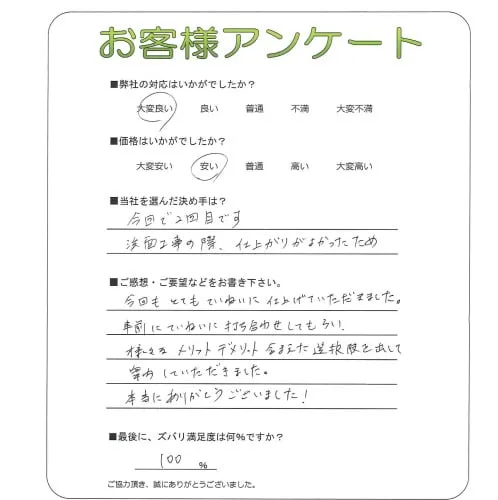 お客様アンケート
■弊社の対応はいかがでしたか？
大変良い 良い 普通 不満 大変不満
■価格はいかがでしたか？
大変安い 安い 普通 高い 大変高い
■当社を選んだ決め手は？
今回で2回目です
洗面工事の際、仕上がりがよかったため
■ご感想・ご要望などをお書き下さい。
今回も とても ていねいに 仕上げていただきました。
事前に ていねいに 打ち合わせしてもらい、
様々な メリット デメリット 含まえた 選択肢を出して
案内していただきました。
本当に ありがとうございました！
■最後に、ズバリ満足度は何％ですか？
100 ％
ご協力頂き、誠にありがとうございました。